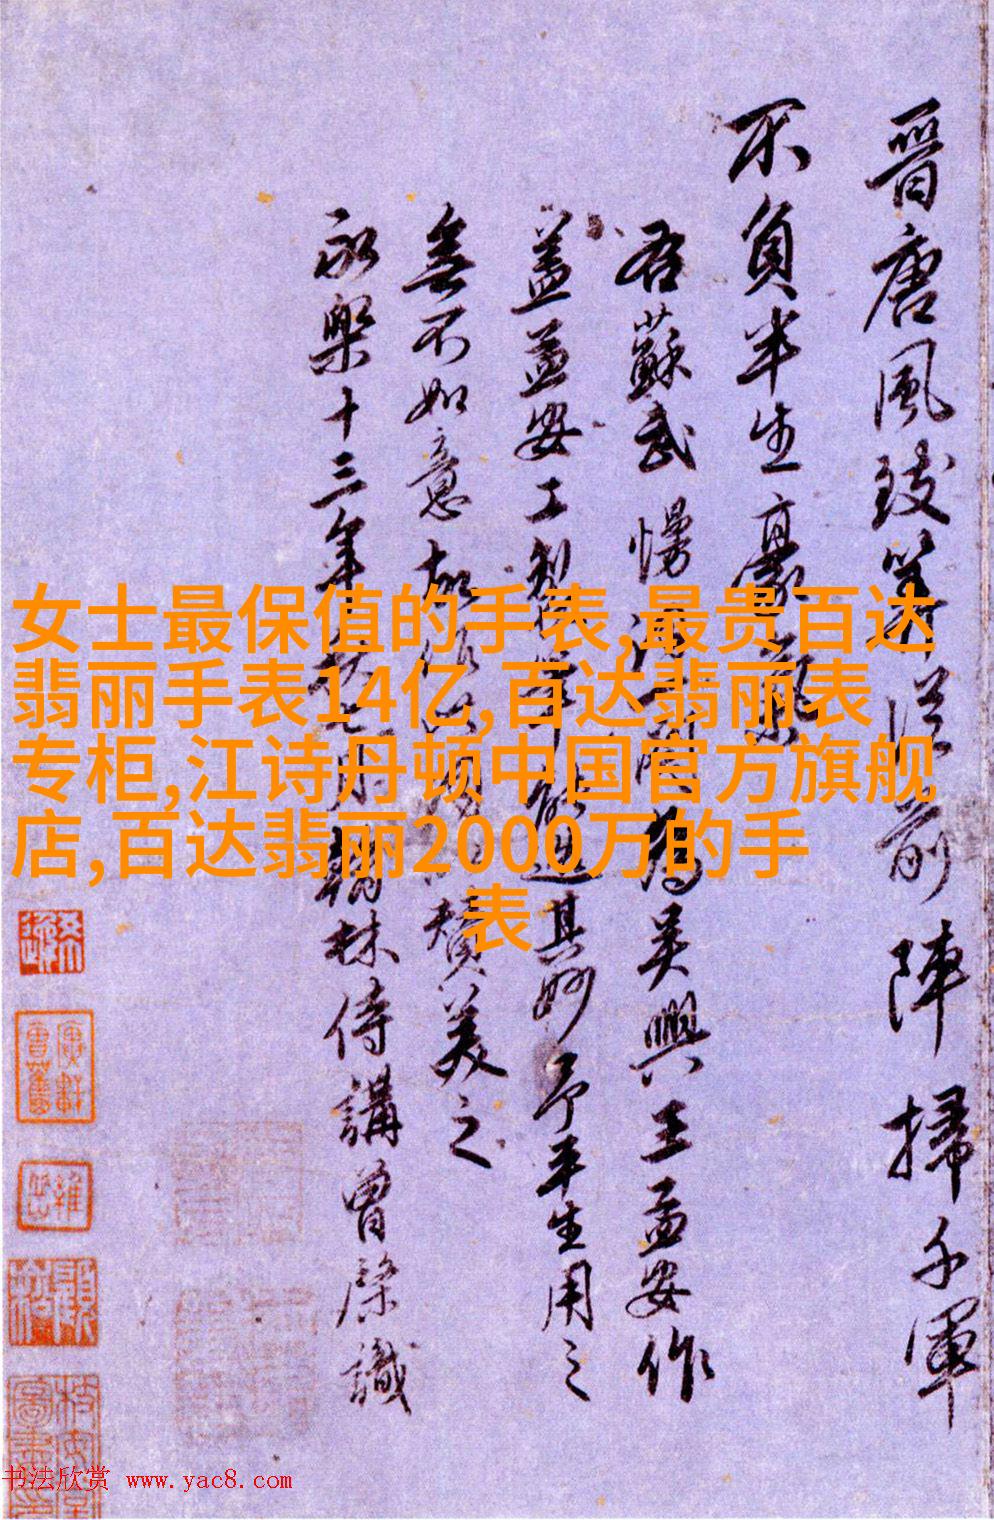 晉唐風致筆從前陣掃千軍
不負半生豪氣
右蘇武慢為吳興王孟安作
蓋孟安工製筆能造其妙予平生用之
無不如意故贊美之
永樂十三年七月翰林侍講曾棨識
女士最保值的手表,最贵百达
翡丽手表14亿,百达翡丽表
专柜,江诗丹顿中国官方旗舰
店,百达翡丽2000万的手
表
书法欣赏 www.yac8.com